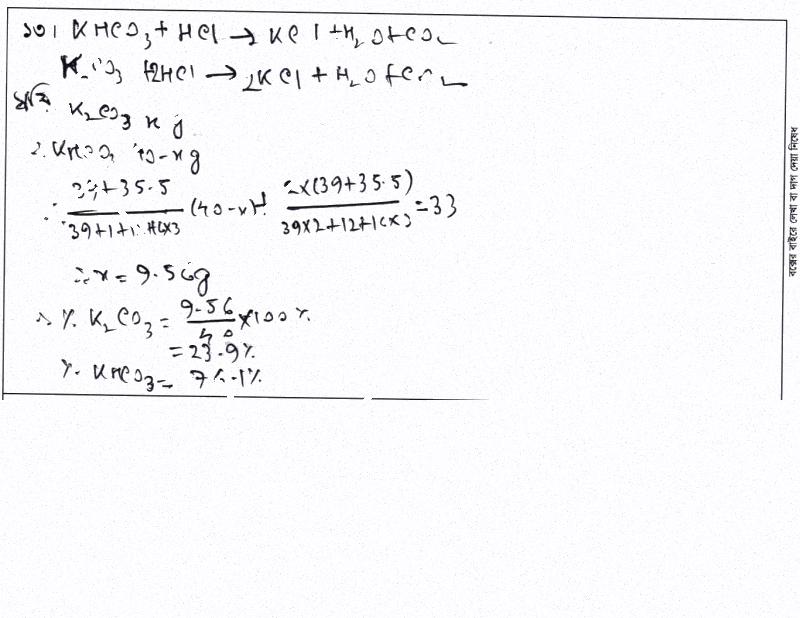 ১০। KHCO3 + HCl → KCl + H2O + CO2
K2CO3 + 2HCl → 2KCl + H2O + CO2
ধরি, K2CO3 x g
∴ KHCO3 40-x g
∴ (39+35.5)/(39+1+12+16×3) (40-x) + (2×(39+35.5))/(39×2+12+16×3) = 33
∴ x = 9.56g
∴ % K2CO3 = 9.56/40 × 100%
= 23.9%
% KHCO3 = 76.1%
বক্সের বাইরে লেখা বা দাগ দেয়া নিষেধ